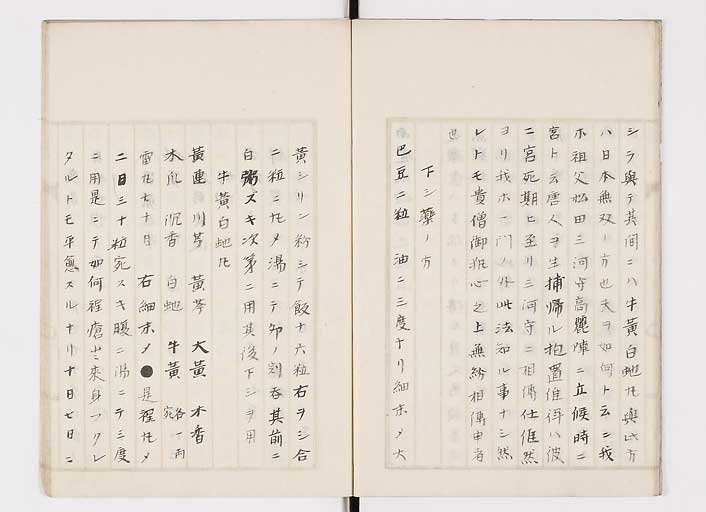 シラ與テ其間ニハ牛黃白虵丸與此方
ハ日本無双ノ方也夫ヲ如何ト云ニ我
ホ祖父松田三河守高麗陣ニ立候時ニ
宮ト云唐人ヲ生捕帰ル抱置候得ハ彼
ニ宮死期ニ至リ三河守ニ相傳仕候然
ヨリ我ホ一門ノ外此法知ル事ナシ然
レトモ貴僧御執心之上無紛相傳申者
也
下シ藥ノ方
巴豆二粒 油ニ三度トリ細ホメ大
黃シリン粉シテ飯十六粒右ヲシ合
二粒ニ丸メ湯ニテ卯ノ刻呑其前ニ
白粥スキ次第ニ用其後下シヲ用
牛黃白虵丸
黃連 川芎 黃芩 大黃 木香
木瓜 沉香 白虵 牛黃 各一両宛
雷丸七十目 右細ホメ●是程丸メ
二日三十粒宛スキ腹ニ湯ニテ三度
ニ用是ニテ如何程瘡出來身フクレ
タルトモ平愈スルナリ十日七日ニ